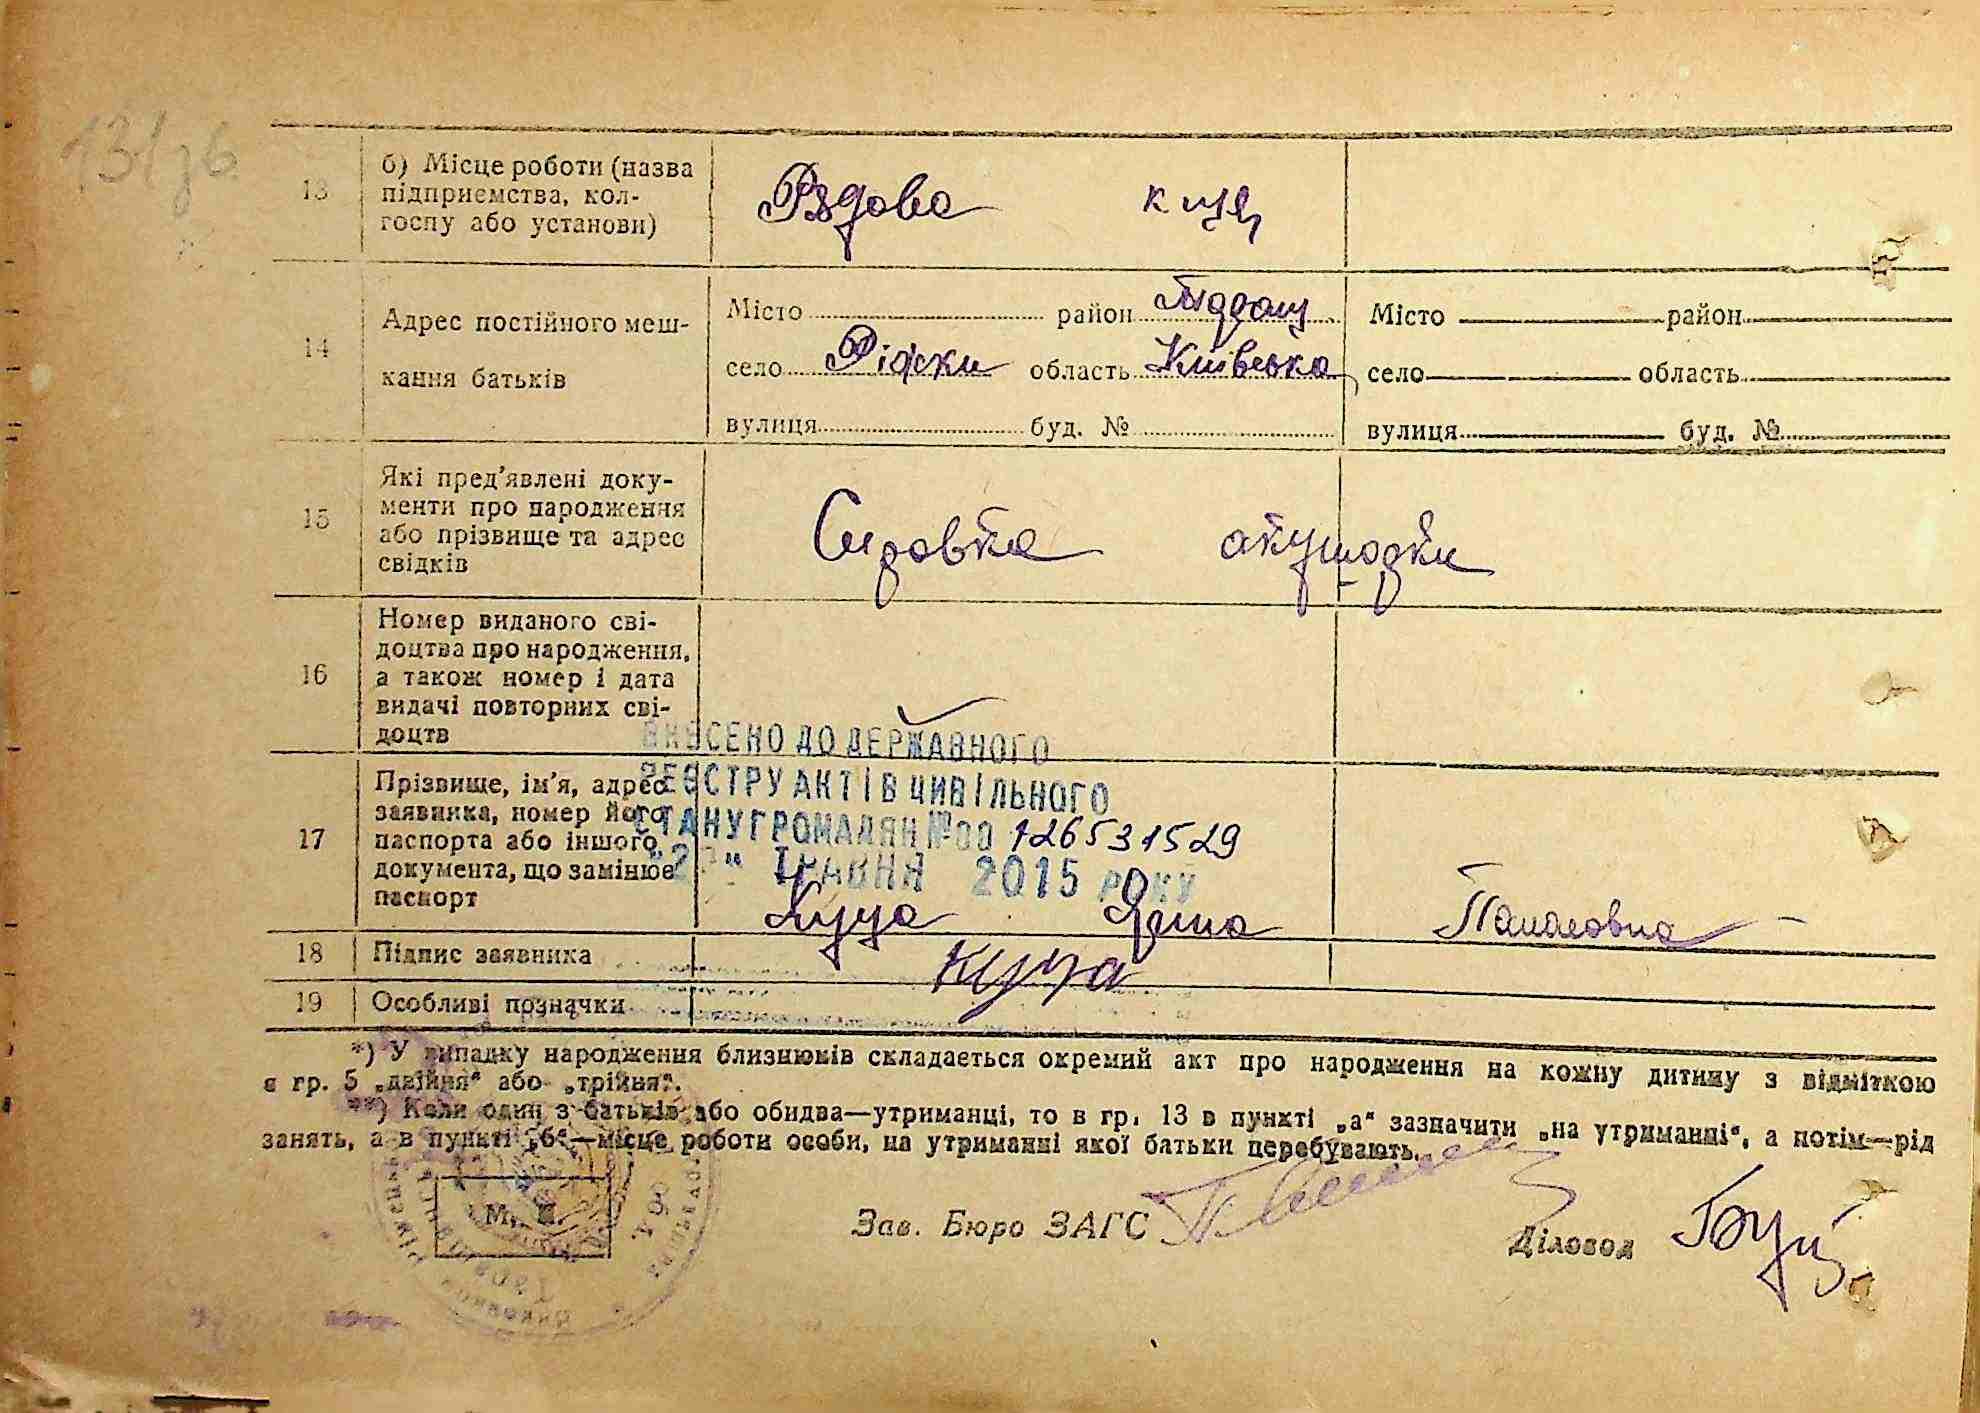 131зв
13 б) Місце роботи (назва
підприємства, кол-
госпу або установи)
14 Адрес постійного меш-
кання батьків
Місто район
село Ріжки область Київська
вулиця буд. №
Місто район
село область
вулиця буд. №
15 Які пред'явлені доку-
менти про народження
або прізвище та адрес
свідків
Справка акушорки
16 Номер виданого сві-
доцтва про народження,
а також номер і дата
видачі повторних сві-
доцтв
17 Прізвище, ім'я, адрес
заявника, номер його
паспорта або іншого
документа, що замінює
паспорт
ВНЕСЕНО ДО ДЕРЖАВНОГО
РЕЄСТРУ АКТІВ ЦИВІЛЬНОГО
СТАНУ ГРОМАДЯН №00126531529
ТРАВНЯ 2015 РОКУ
Куца Панасовна
18 Підпис заявника Куца
19 Особливі позначки
*) У випадку народження близнюків складається окремий акт про народження на кожну дитину з відміткою
в гр. 5 „двійня“ або „трійня“.
**) Коли один з батьків або обидва—утриманці, то в гр. 13 в пункті „а“ зазначити „на утриманні“, а потім—рід
занять, а в пункті „б“—місце роботи особи, на утриманні якої батьки перебувають.
М. П.
Зав. Бюро ЗАГС
Діловод